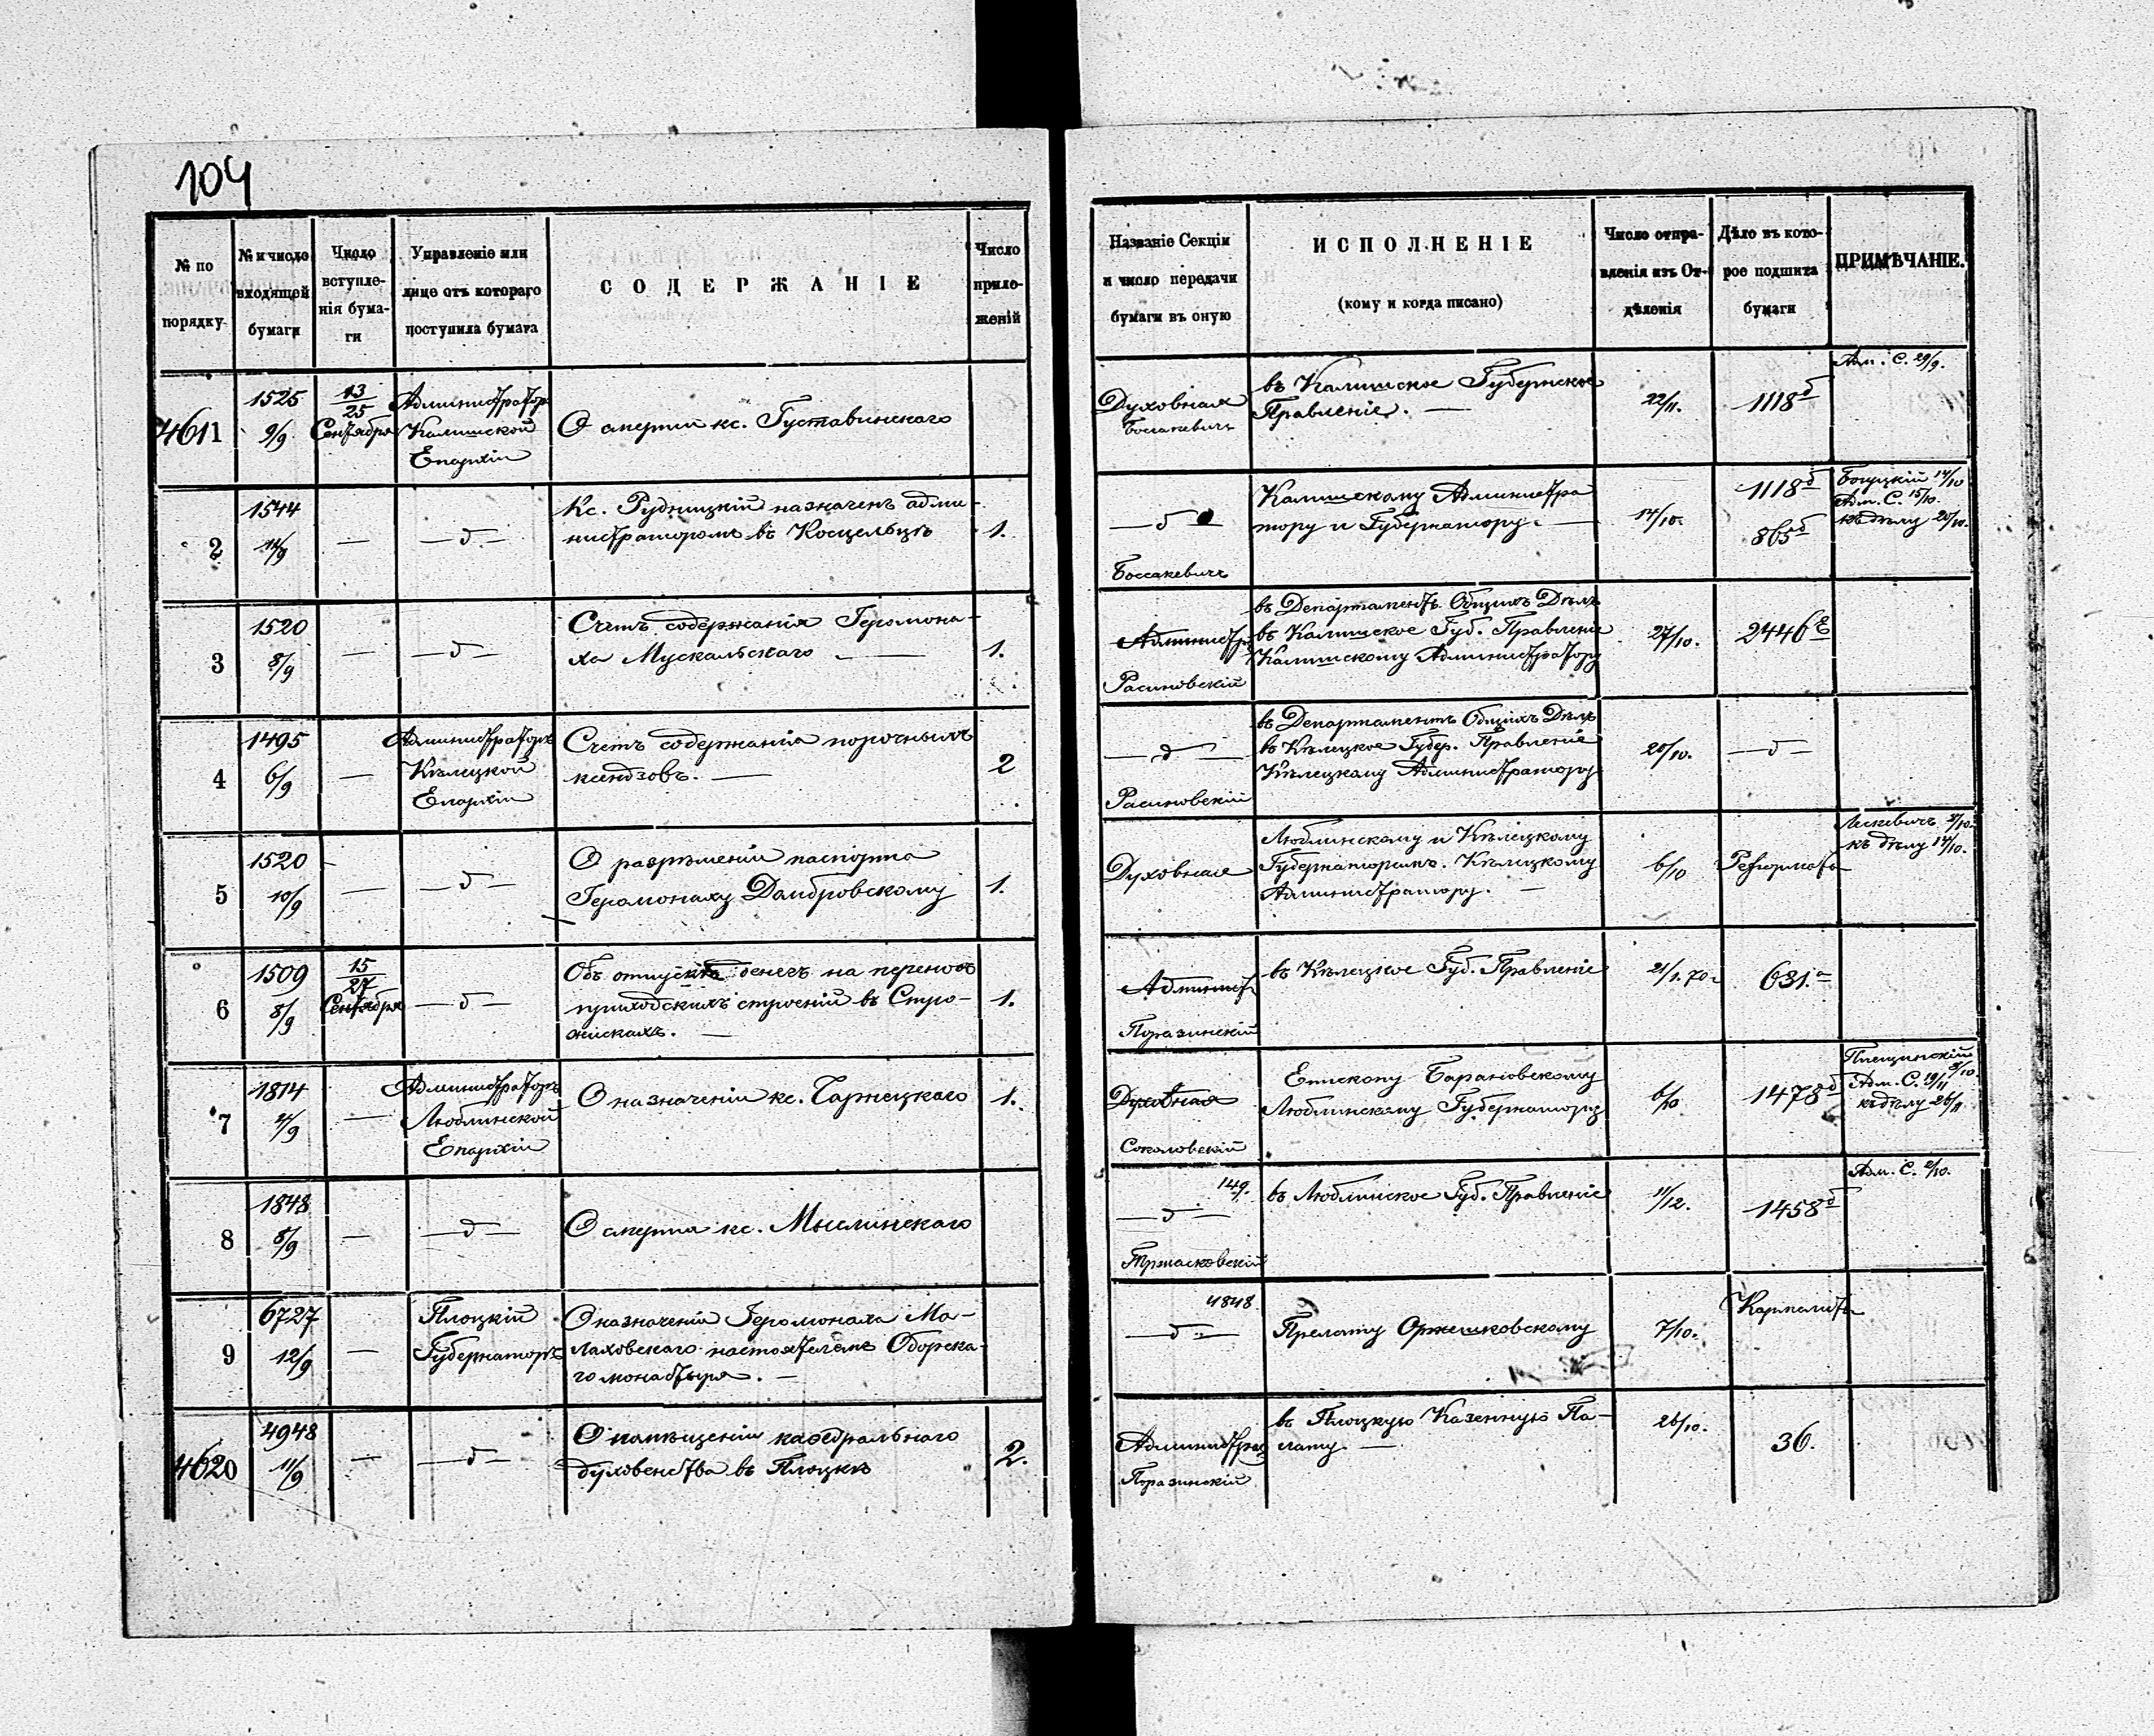 104
№ по
порядку.
№ и число
входящей
бумаги
Число
вступле-
нія бума-
ги
Управленіе или
лице отъ котораго
поступила бумага
СОДЕРЖАНІЕ
Число
прило-
женій
Названіе Секціи
и число передачи
бумаги въ оную
ИСПОЛНЕНІЕ
(кому и когда писано)
Число отпра-
вленія изъ От-
дѣленія
Дѣло въ кото-
рое подшита
бумаги
ПРИМѢЧАНІЕ.
4611
1525
9/9
13/25
Сентября
Администраторъ
Калишской
Епархіи
О смерти кс. Густавинскаго
Духовная
Боссакевичъ
въ Калишское Губернское
Правленіе. —
22/11.
1118б
Адм. С. 29/9.
2
1544
14/9
—
— д —
Кс. Рудницкій назначенъ адми-
нистраторомъ въ Косцельцѣ
1.
— д —
Боссакевичъ
Калишскому Администра
тору и Губернатору. —
14/10.
1118б
865б
14/10
Адм. С. 15/10.
къ дѣлу 20/10.
3
1520
8/9
—
— д —
Счетъ содержанія Іеромона-
ха Мускальскаго —
1.
Администр.
Расиновскій
въ Департаментъ Общихъ Дѣлъ
въ Калишское Губ. Правленіе
Калишскому Администратору
27/10.
2446
4
1495
6/9
—
Администраторъ
Кѣлецкой
Епархіи
Счетъ содержанія порочныхъ
ксендзовъ. —
2
— д —
Расиновскій
въ Департаментъ Общихъ Дѣлъ
въ Кѣлецкое Губер. Правленіе
Кѣлецкому Администратору
20/10.
— д —
5
1520
10/9
—
— д —
О разрѣшеніи паспорта
Іеромонаху Домбровскому
1.
Духовная
Люблинскому и Кѣлецкому
Губернаторамъ. Кѣлецкому
Администратору. —
6/10
Реформаты
къ дѣлу 14/10.
6
1509
8/9
15/27
Сентября
— д —
Объ отпускѣ денегъ на переносъ
приходскихъ строеній въ Стро-
жискахъ. —
1.
Админист
Поразинскій
въ Кѣлецкое Губ. Правленіе
21/1.70.
631.а
7
1814
4/9
—
Администраторъ
Люблинской
Епархіи
О назначеніи кс. Чарнецкаго
1.
Духовная
Соколовскій
Епископу Барановскому
Люблинскому Губернатору
6/10
1478б
Адм. С. 19/11
къ дѣлу 26/11
8
1848
8/9
—
— д —
О смерти кс. Мыслинскаго
149.
— д —
въ Люблинское Губ. Правленіе
11/12.
1458б
Адм. С. 2/10.
9
6727
12/9
—
Плоцкій
Губернаторъ
О назначеніи Іеромонаха Ма-
лаховскаго настоятелемъ Оборска-
го монастыря. —
4848
— д —
Прелату Оржешковскому
7/10.
Кармелиты
4620
4948
11/9
—
— д —
О помѣщеніи каѳедральнаго
духовенства въ Плоцкѣ
2.
Администрац
Поразинскій
въ Плоцкую Казенную Па-
лату —
26/10.
36.